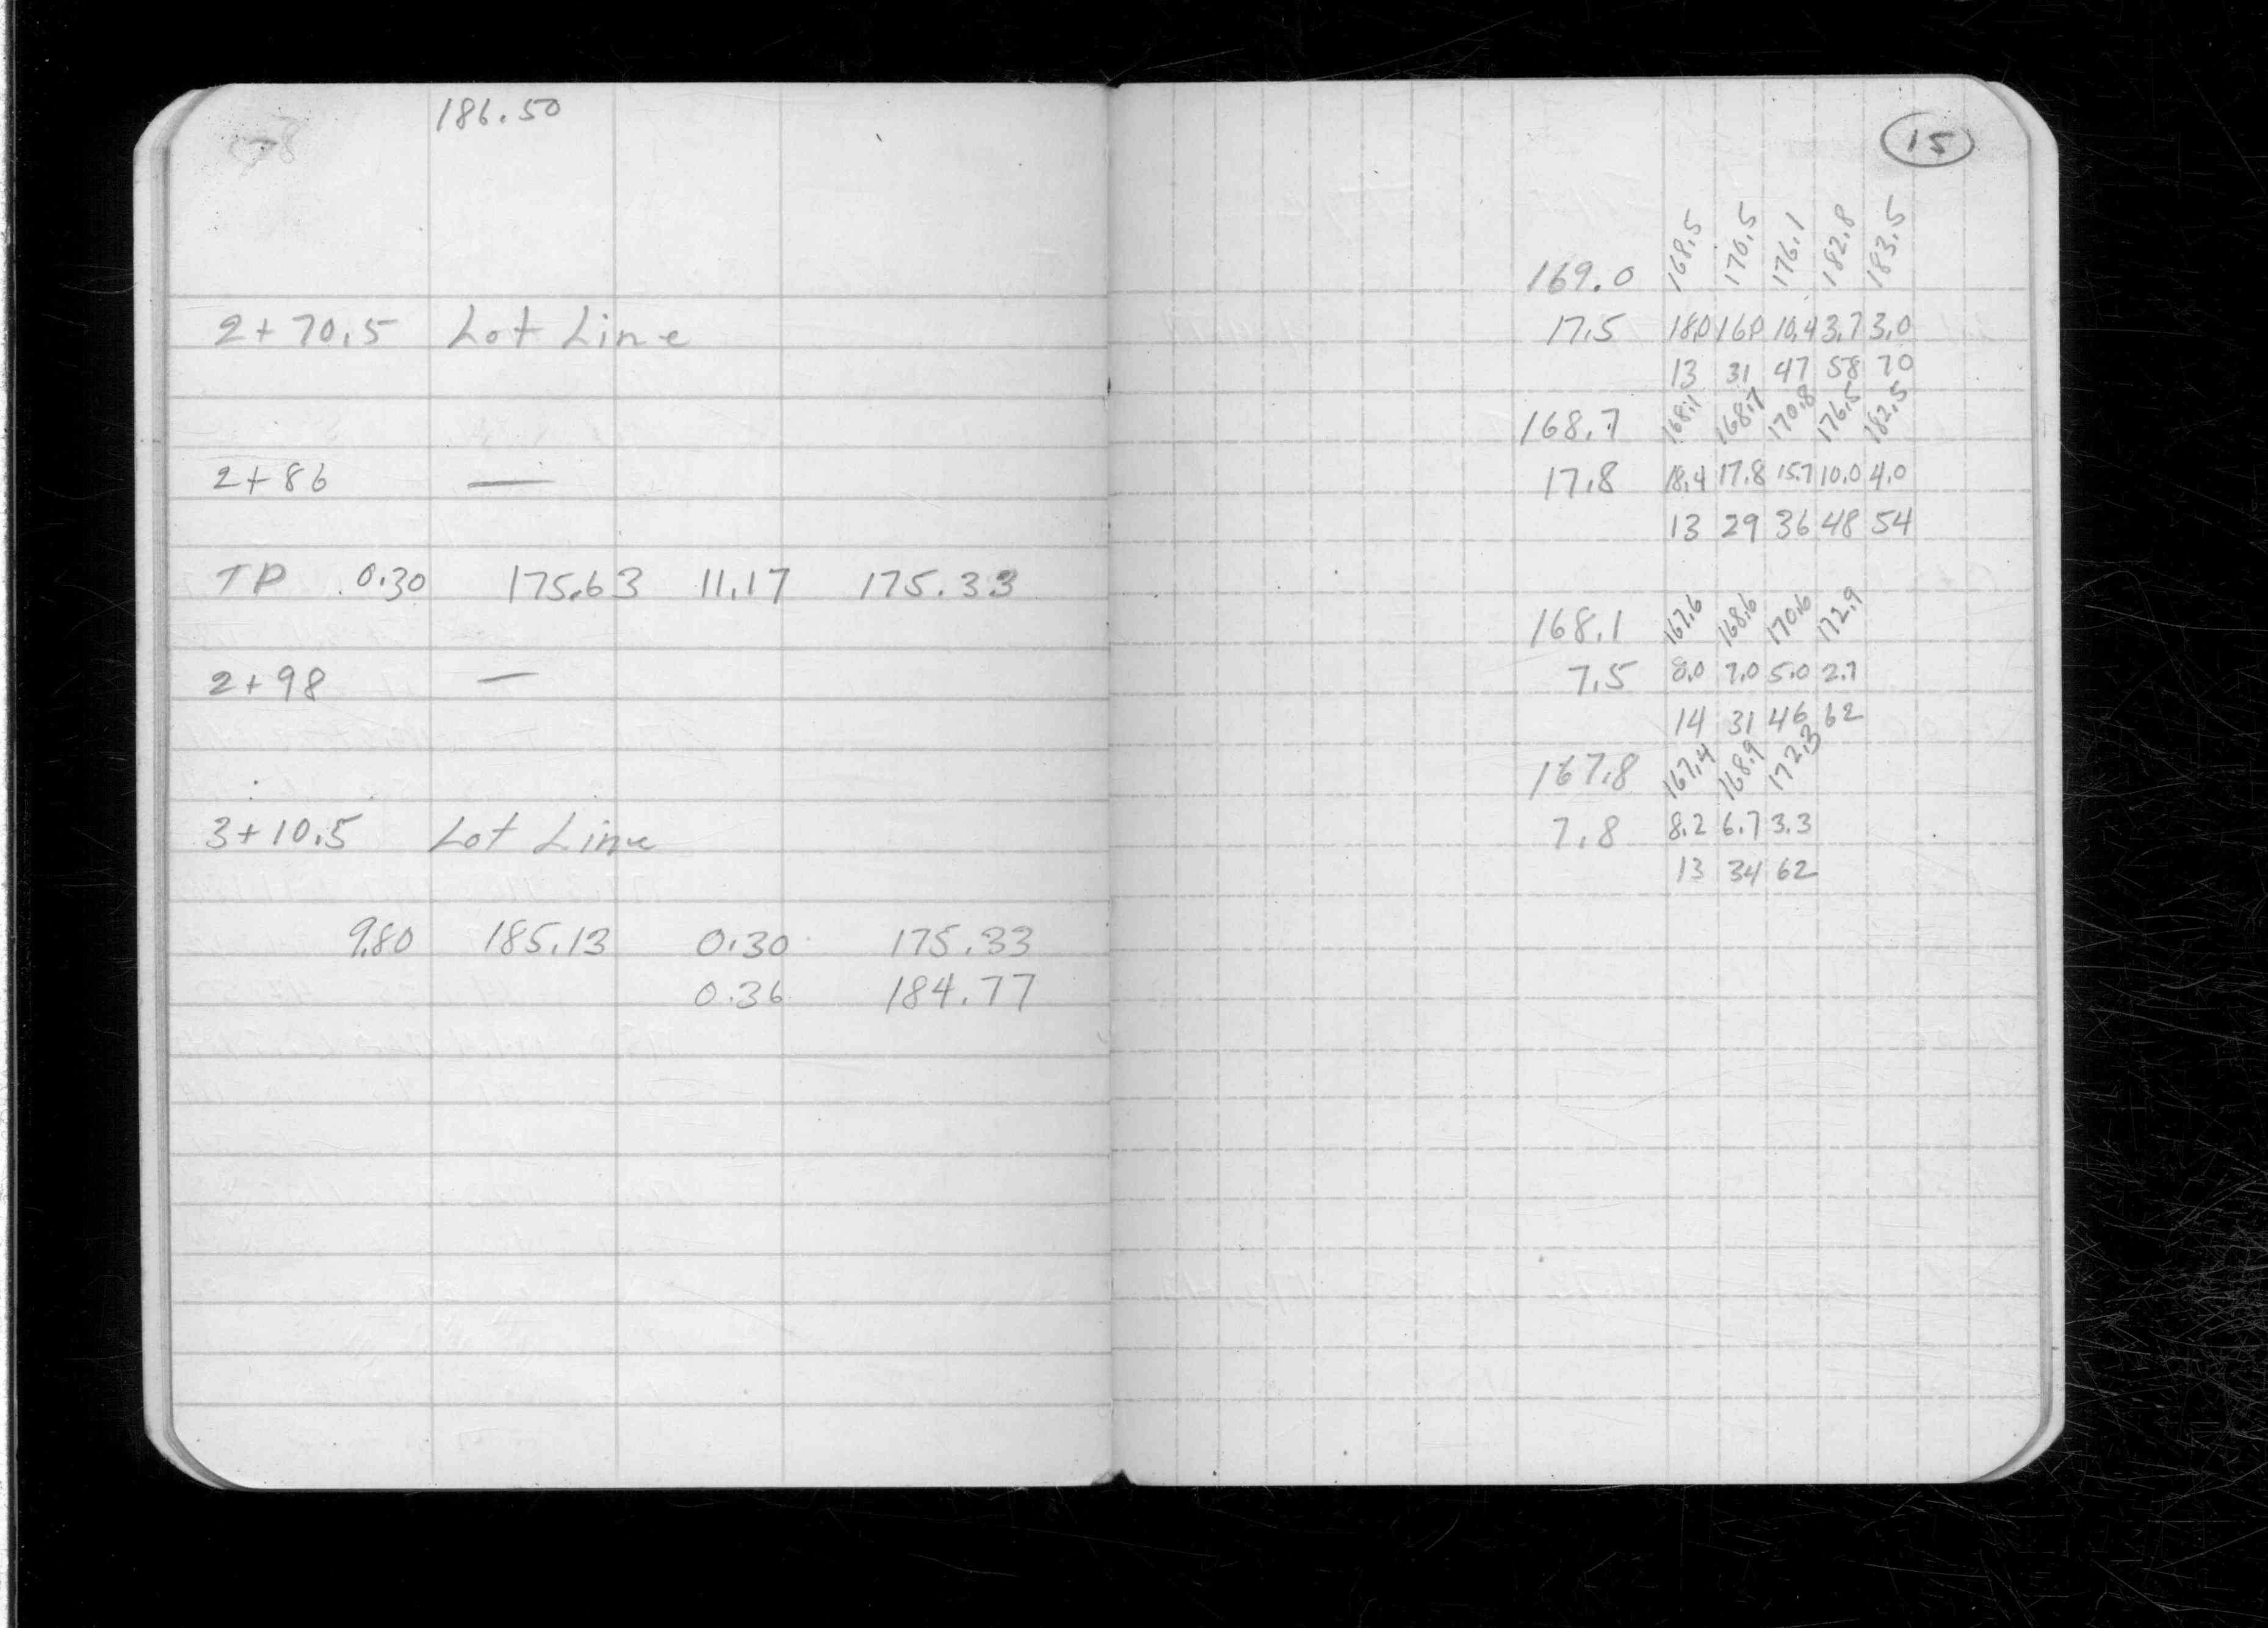 186.50
2+70.5 Lot Line
2+86 —
TP 0.30 175.63 11.17 175.33
2+98 —
3+10.5 Lot Line
9.80 185.13 0.30 175.33
0.36 184.77
15
169.0 168.5 170.5 176.1 182.8 183.5
17.5 18.0 16.0 10.4 3.7 3.0
13 31 47 58 70
168.7 168.1 168.7 170.8 176.5 182.5
17.8 18.4 17.8 15.7 10.0 4.0
13 29 36 48 54
168.1 167.6 168.6 170.6 172.9
7.5 8.0 7.0 5.0 2.7
14 31 46 62
167.8 167.4 168.9 172.3
7.8 8.2 6.7 3.3
13 34 62